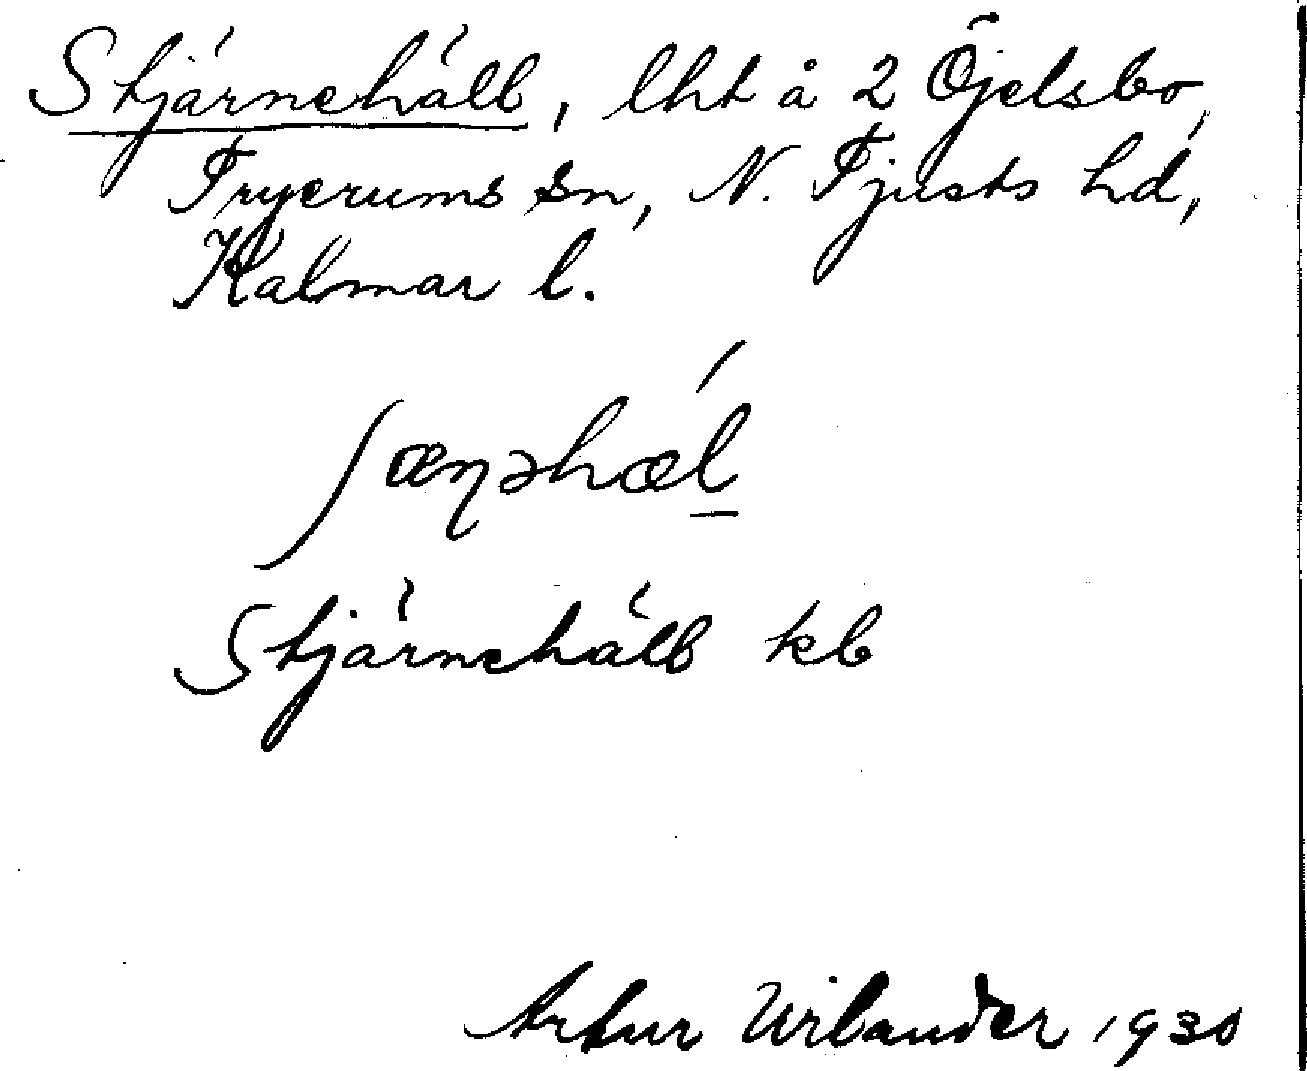 Stjärnehäll, lht å 2 Öjelsbo,
Tryserums sn, N. Tjusts hd,
Kalmar l.
Stjärnehäll kb
Artur Wilander 1930